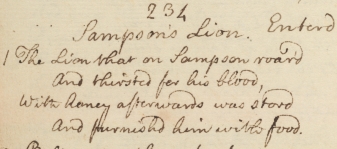 234
Sampson's Lion. Enterd
1 The Lion that on Sampson roard
And thirsted for his blood,
With honey afterwards was stord
And furnishd him with food.